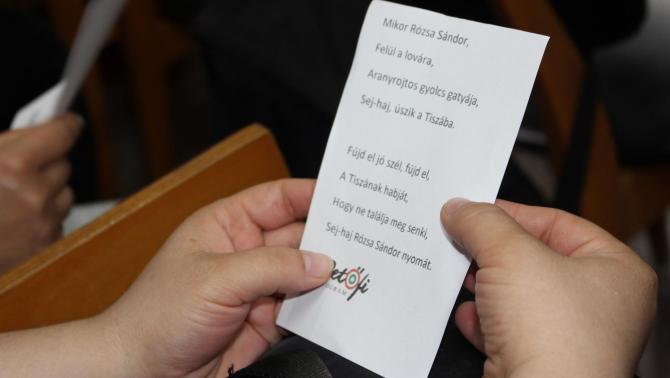 Mikor Rózsa Sándor,
Felül a lovára,
Aranyrojtos gyolcs gatyája,
Sej-haj, úszik a Tiszába.
Fújd el jó szél, fújd el,
A Tiszának habját,
Hogy ne találja meg senki,
Sej-haj Rózsa Sándor nyomát.